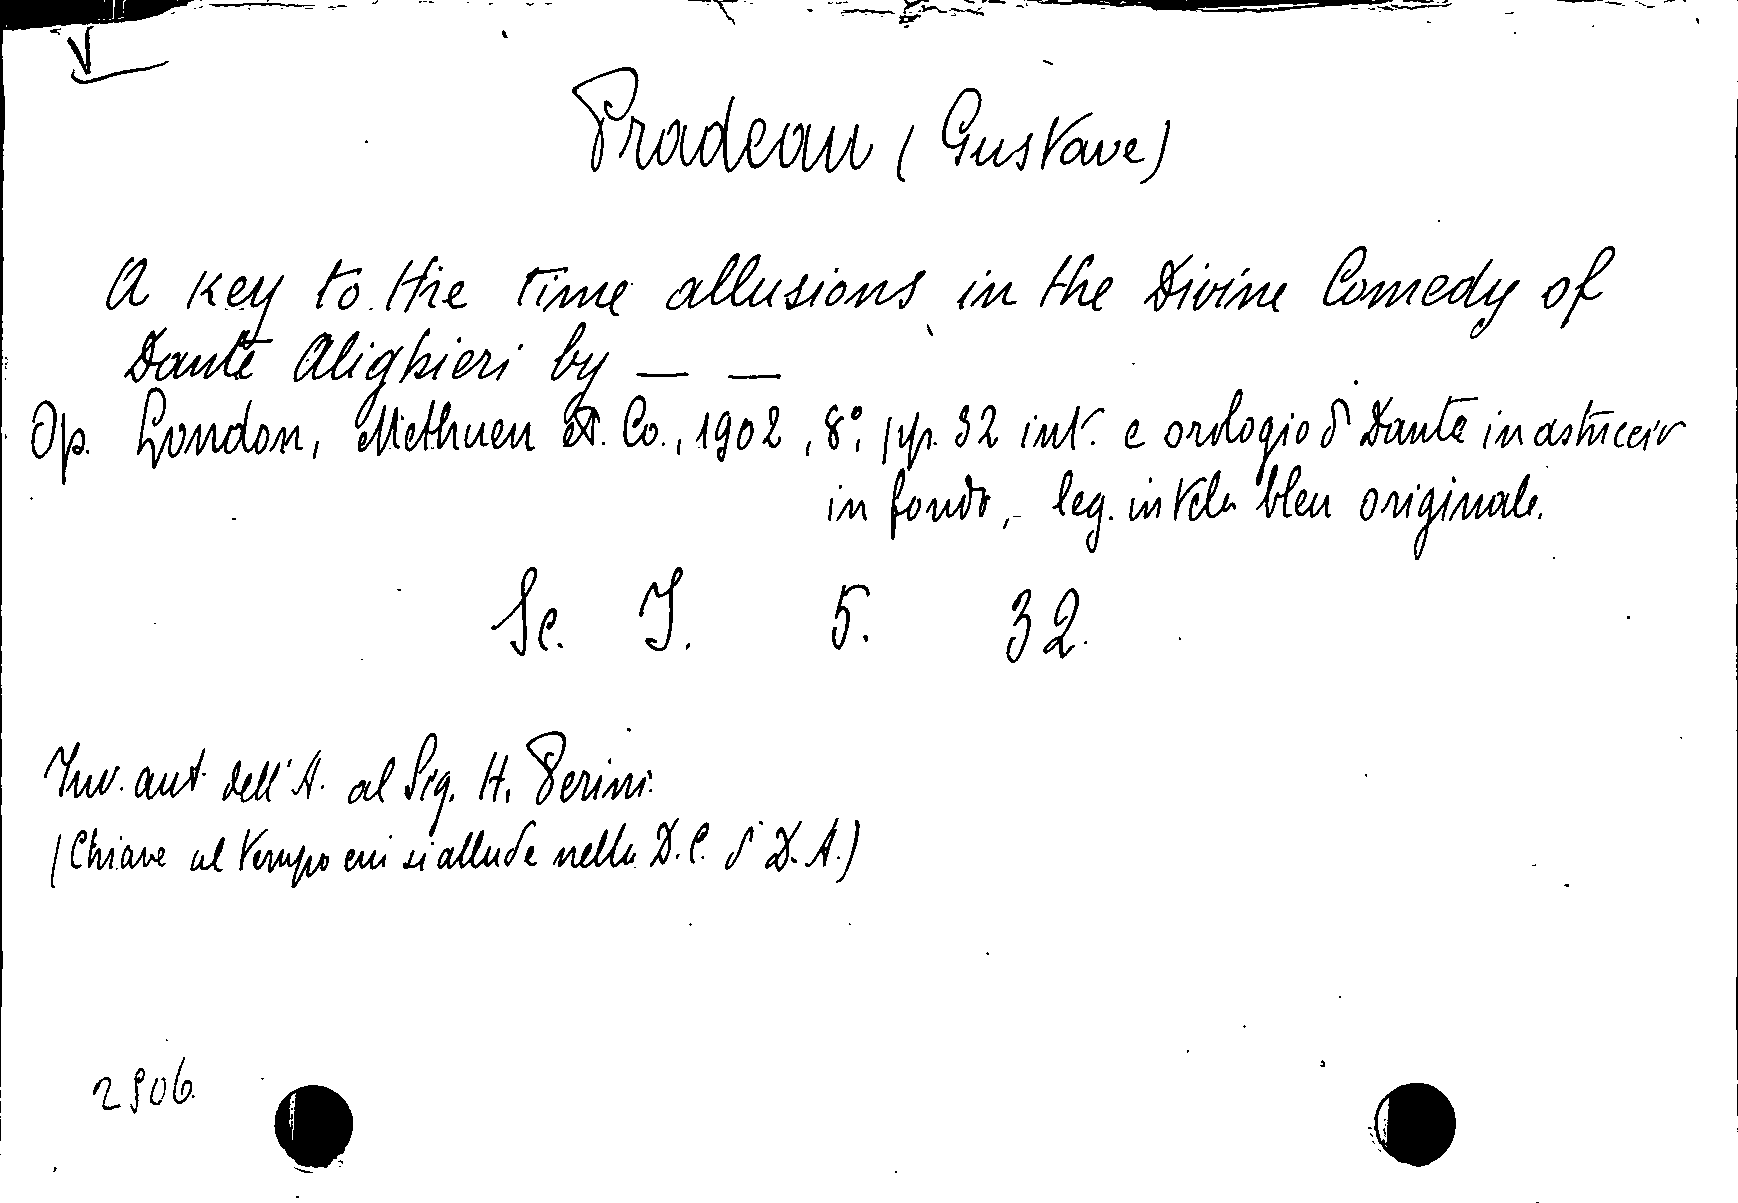 V
Pradeau (Gustave)
A key to the time allusions in the Divine Comedy of
Dante Alighieri by — —
Op. London, Methuen et. Co., 1902, 8°, pp. 32 int. e orologio d' Dante in astuccio
in fondo, - leg. in tela bleu originale.
Sc. I. 5. 32.
Inv. aut. dell'A. al Sig. H. Perini.
(Chiave al tempo cui si allude nella D.C. d' D.A.)
2906.